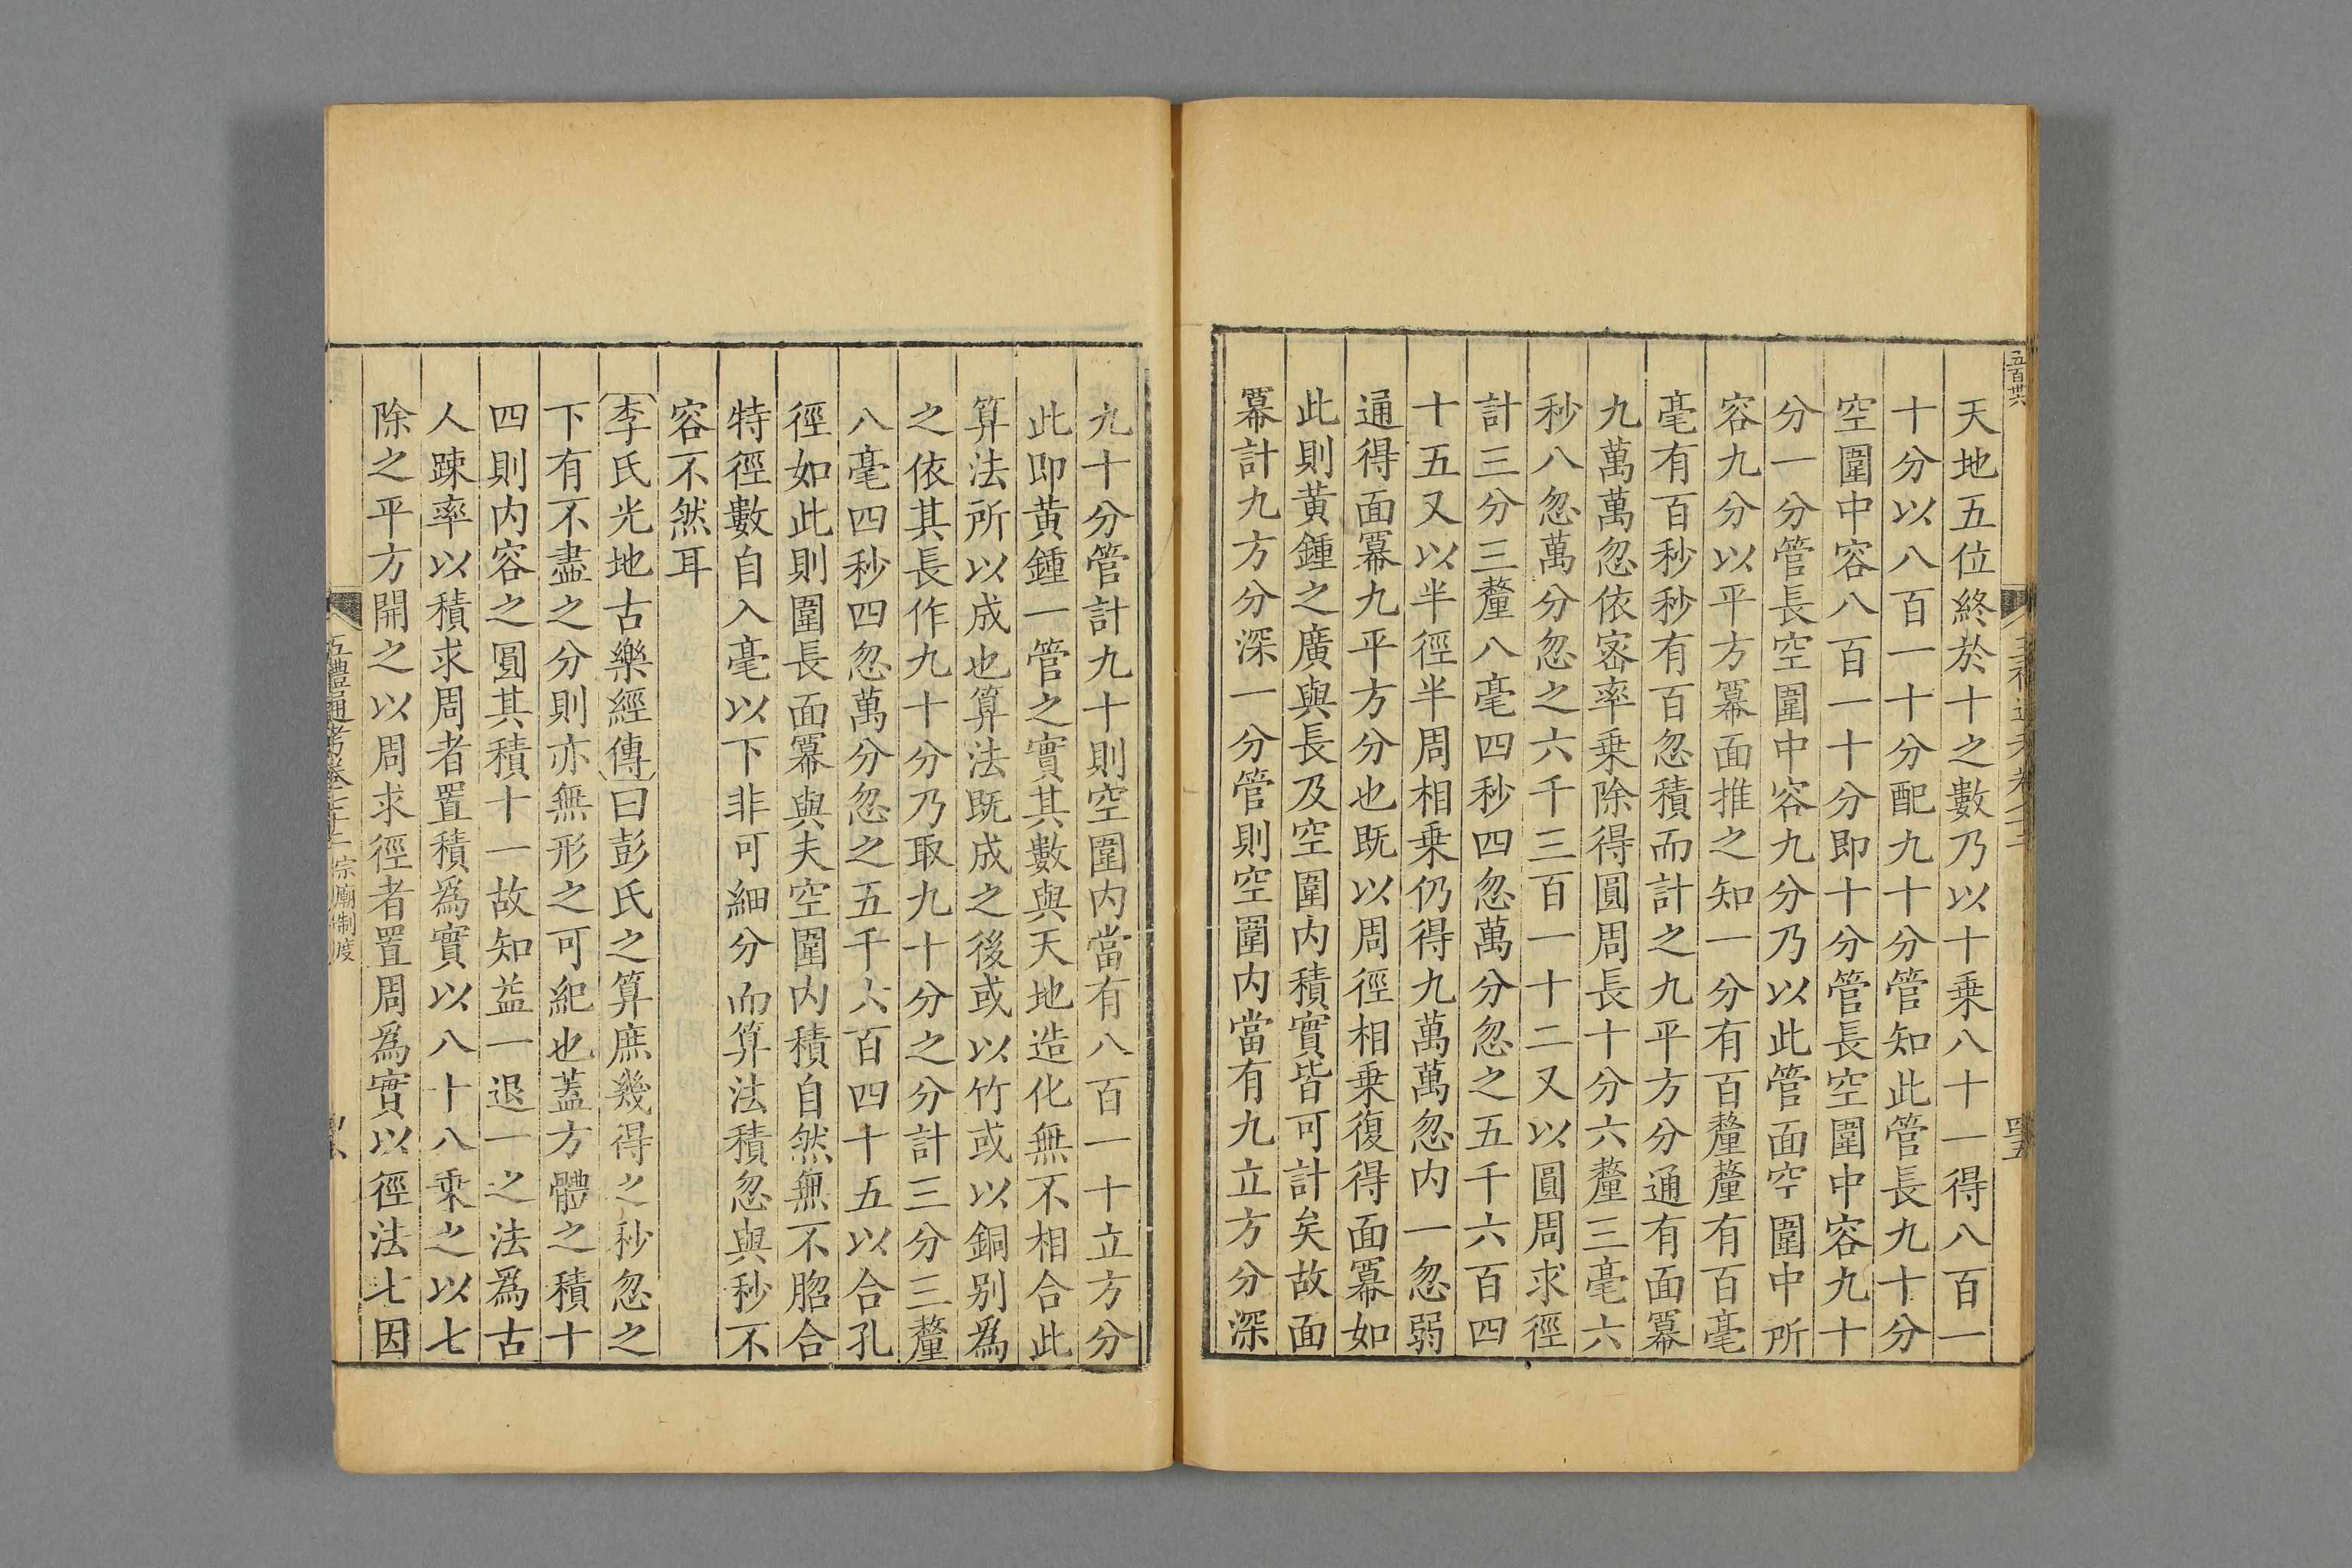 五百卅六
天地五位終於十之數乃以十乗八十一得八百一
十分以八百一十分配九十分管知此管長九十分
空圍中容八百一十分即十分管長空圍中容九十
分一分管長空圍中容九分乃以此管面空圍中所
容九分以平方冪面推之知一分有百釐釐有百毫
毫有百秒秒有百忽積而計之九平方分通有面冪
九萬萬忽依宻率乗除得圓周長十分六釐三毫六
秒八忽萬分忽之六千三百一十二又以圓周求徑
計三分三釐八毫四秒四忽萬分忽之五千六百四
十五又以半徑半周相乗仍得九萬萬忽内一忽弱
通得面冪九平方分也既以周徑相乗復得面冪如
此則黄鍾之廣與長及空圍内積實皆可計矣故面
冪計九方分深一分管則空圍内當有九立方分深
九十分管計九十則空圍内當有八百一十立方分
此即黄鍾一管之實其數與天地造化無不相合此
算法所以成也算法既成之後或以竹或以銅别爲
之依其長作九十分乃取九十分之分計三分三釐
八毫四秒四忽萬分忽之五千六百四十五以合孔
徑如此則圍長面冪與夫空圍内積自然無不脗合
特徑數自入毫以下非可細分而算法積忽與秒不
容不然耳
李氏光地古樂經傳曰彭氏之算庶幾得之秒忽之
下有不盡之分則亦無形之可紀也蓋方體之積十
四則内容之圓其積十一故知益一退一之法爲古
人踈率以積求周者置積爲實以八十八乘之以七
除之平方開之以周求徑者置周爲實以徑法七因
五禮通考卷七十二 宗廟制度